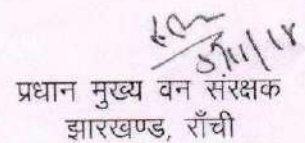 5/11/18
प्रधान मुख्य वन संरक्षक
झारखण्ड, राँची